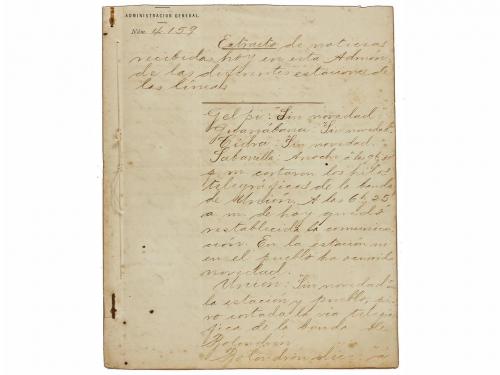 ADMINISTRACION GENERAL
Núm. 4.159
Extracto de noticias
recibidas hoy en esta Admón.
de las diferentes estaciones de
las líneas
Gelpi: "Sin novedad"
Guanábana: "Sin novedad"
Cidra: Sin novedad.
Sabanilla: Anoche á las 9h
p. m. cortaron los hilos
telegráficos de la banda
de Unión. A las 6h 25
a. m. de hoy quedó
restablecida la comunica-
ción. En la estación ni
en el pueblo ha ocurrido
novedad.
Unión: "Sin novedad en
la estación y pueblo, pe-
ro cortada la vía telegrá-
fica de la banda de
Bolondrón
Bolondrón